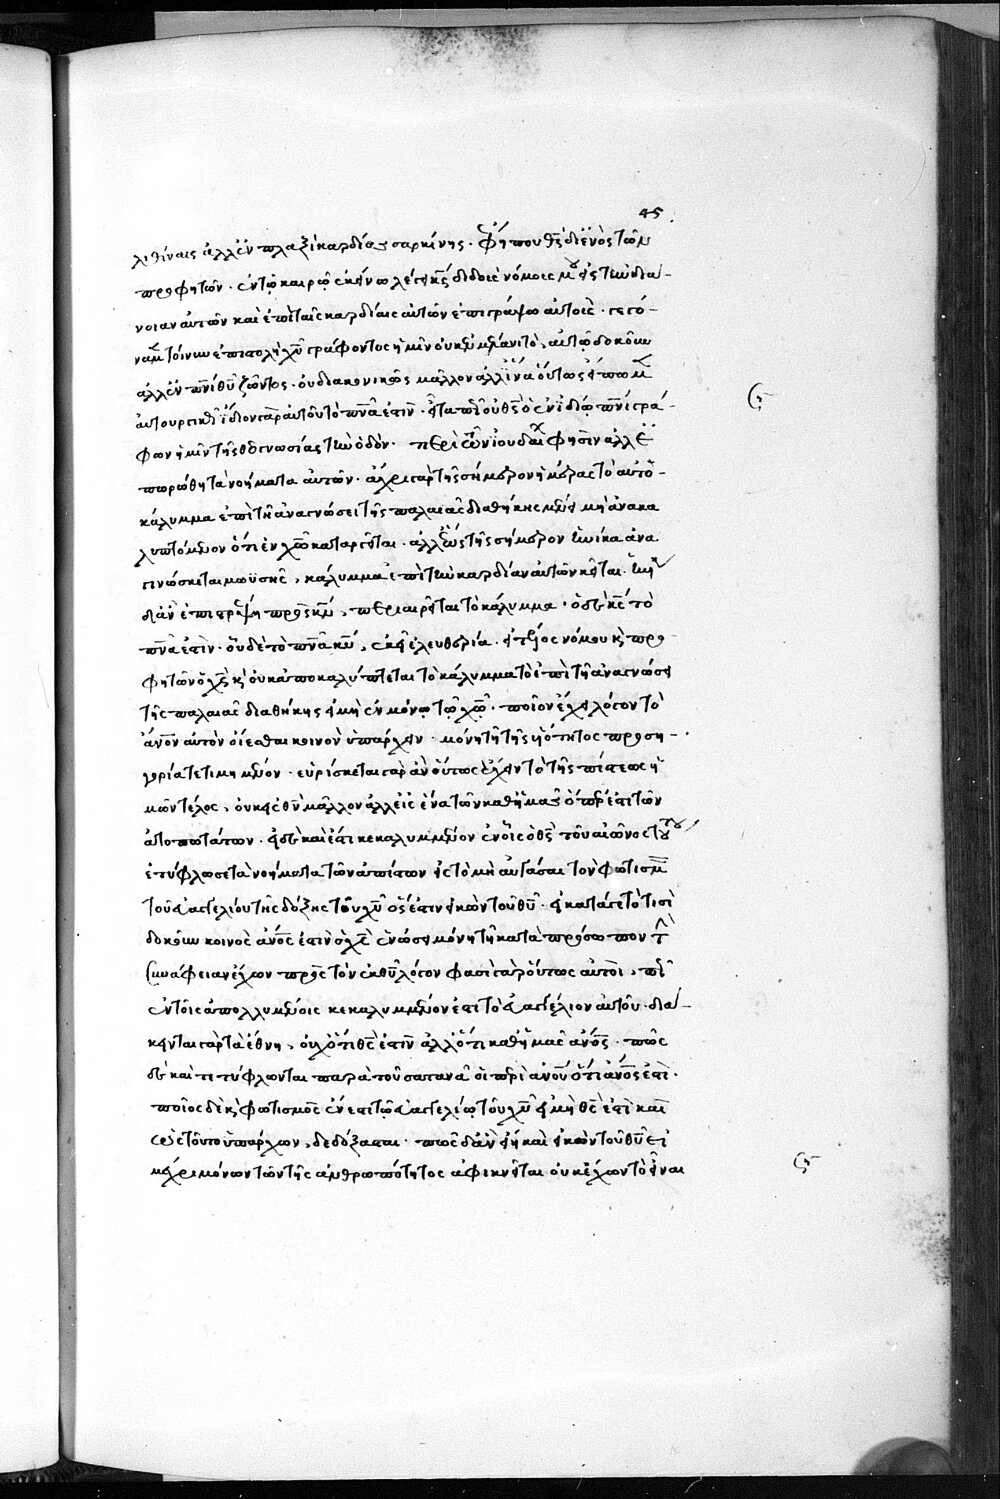 45
λιθίναις ἀλλ' ἐν πλαξὶ καρδίας σαρκίναις. ἔφη που θς δι' ἑνὸς τῶν
προφητῶν. ἐν τῷ καιρῷ ἐκείνω λέγει κς διδοὺς νόμους μου εἰς τὴν διά-
νοιαν αὐτῶν καὶ ἐπὶ ταῖς καρδίαις αὐτῶν ἐπιγράψω αὐτούς. γεγό-
ναμεν τοίνυν ἐπιστολὴ χυ γράφοντος ἡμῖν οὐκ ἐν μέλανι τὸ αὐτῷ δοκοῦν
ἀλλ' ἐν πνι θυ ζῶντος. οὐ διακονικῶς μᾶλλον ἀλλ' ἵνα οὕτως εἴπωμεν
αὐτουργικῶς ἴδιον γὰρ αὐτοῦ τὸ πνα ἐστιν. εἶτα πῶς οὐ θς ὁ ἐν ἰδίῳ πνι γρά-
φων ἡμῖν τῆς θεογνωσίας τὴν ὁδόν. περὶ τῶν ἰουδαίων φησὶν ἀλλ'
ἐπωρώθη τὰ νοήματα αὐτῶν. ἄχρι γὰρ τῆς σήμερον ἡμέρας τὸ αὐτὸ
κάλυμμα ἐπὶ τῇ ἀναγνώσει τῆς παλαιᾶς διαθήκης μένει μὴ ἀνακα
λυπτόμενον ὅτι ἐν χω καταργεῖται. ἀλλ' ἕως τῆς σήμερον ἡνίκα ἀνα
γινώσκεται μωϋσῆς, κάλυμμα ἐπὶ τὴν καρδίαν αὐτῶν κεῖται. ἡνίκα
δ' ἂν ἐπιστρέψη πρὸς κν, περιαιρεῖται τὸ κάλυμμα. ὁ δὲ κς τὸ
πνα ἐστίν. οὗ δὲ τὸ πνα κυ, ἐκεῖ ἐλευθερία. εἰ τέλος νόμου κ προ
φητῶν ὁ χς κ οὐκ ἀποκαλύπτεται τὸ κάλυμμα τὸ ἐπὶ τῇ ἀναγνώσει
τῆς παλαιᾶς διαθήκης εἰ μὴ ἐν μόνῳ τῷ χω. ποῖον ἔχει λόγον τὸ
ἄνον αὐτὸν οἴεσθαι κοινὸν ὑπάρχειν. μόνῃ τῇ τῆς υἱότητος προση-
γορία τετιμημένον. εὑρίσκεται γὰρ ἂν οὕτως ἔχειν τὸ τῆς πίστεως ἡ
μῶν τέλος, οὐκ εἰς θν μᾶλλον ἀλλ' εἰς ἕνα τῶν καθ' ἡμᾶς ὅπερ ἐστὶ τῶν
ἀτοπωτάτων. εἰ δὲ καὶ ἔστι κεκαλυμμένον ἐν οἷς ὁ θς τοῦ αἰῶνος τούτου
ἐτύφλωσε τὰ νοήματα τῶν ἀπίστων εἰς τὸ μὴ αὐγάσαι τὸν φωτισμὸν
τοῦ εὐαγγελίου τῆς δόξης τοῦ χυ ὅς ἐστιν εἰκὼν τοῦ θυ. εἰ κατά γε τό τισὶ
δοκοῦν κοινὸς ἄνος ἐστὶν ὁ χς ἑνώσει μόνῃ τῇ κατὰ πρόσωπον τὴν
συνάφειαν ἔχων πρὸς τὸν ἐκ θυ λόγον φασὶ γὰρ οὕτως αὐτοὶ, πῶς
ἐν τοῖς ἀπολλυμένοις κεκαλυμμένον ἐστι τὸ εὐαγγέλιον αὐτοῦ. διά-
κεινται γὰρ τὰ ἔθνη, οὐχ ὅτι θς ἐστιν ἀλλ' ὅτι καθ' ἡμᾶς ἄνος. πῶς
δὲ καί τι τύφλωνται παρὰ τοῦ σατανᾶ οἱ περὶ ἄνου ὅτι ἄνος ἐστι.
ποῖος δὲ κ φωτισμὸς ἔνεστι τῷ εὐαγγελίῳ τοῦ χυ εἰ μὴ θς ἐστι καὶ
ὡς τοῦτο ὑπάρχων, δεδόξασται. πῶς δ' ἂν εἴη καὶ εἰκὼν τοῦ θυ εἰ
μέχρι μόνων τῶν τῆς ἀνθρωπότητος ἀφικνεῖται οὐκ ἔχων τὸ εἶναι